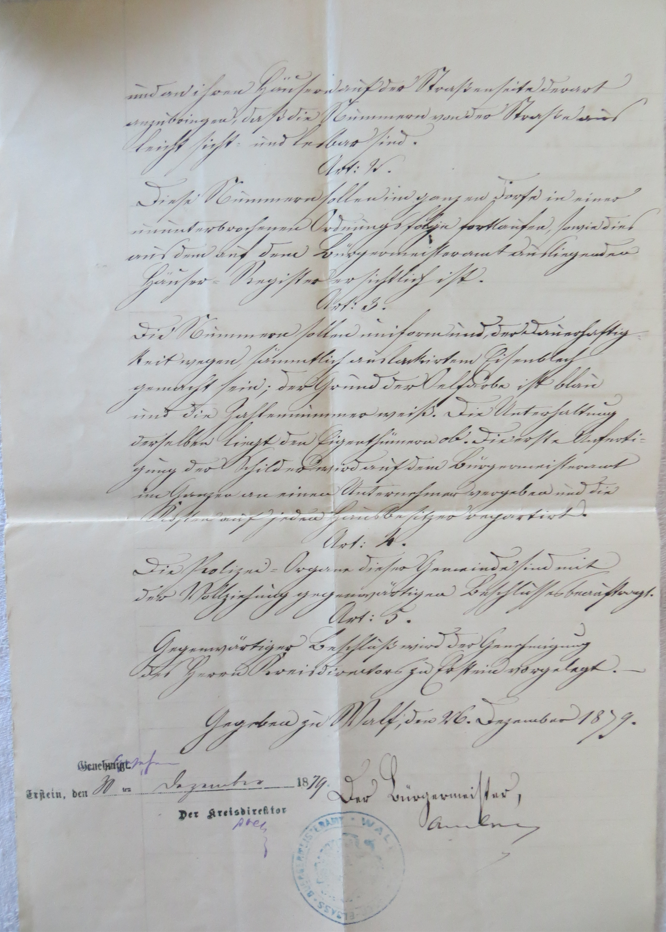 und an ihren Häusern auf der Straßenseite derart
anzubringen, daß die Nummern von der Straße aus
leicht sicht- und lesbar sind.
Art: 2.
Diese Nummern sollen im ganzen Dorfe in einer
ununterbrochenen Ordnungsfolge fortlaufen, sowie dies
aus dem auf dem Bürgermeisteramt aufliegenden
Häuser-Register ersichtlich ist.
Art: 3.
Die Nummern sollen uniform und, der Dauerhaftig-
keit wegen, sämmtlich aus lackirtem Eisenblech
gemacht sein; der Grund der Farbe ist blau
und die Zahlennummer weiß. Die Unterhaltung
derselben liegt den Eigenthümern ob. Die erste Anferti-
gung der Schilder wird auf dem Bürgermeisteramt
im Ganzen an einen Unternehmer vergeben und die
Kosten auf jeden Hausbesitzer repartirt.
Art: 4.
Die Polizei-Organe dieser Gemeinde sind mit
der Vollziehung gegenwärtigen Beschlusses beauftragt.
Art: 5.
Gegenwärtiger Beschluß wird der Genehmigung
des Herrn Kreisdirectors zu Erstein vorgelegt. —
Gegeben zu Walf, den 26. Dezember 1879.
Genehmigt.
Erstein, den 30 ten Dezember 1879.
Der Bürgermeister,
Der Kreisdirektor
BÜRGERMEISTERAMT WALF
ELSASS